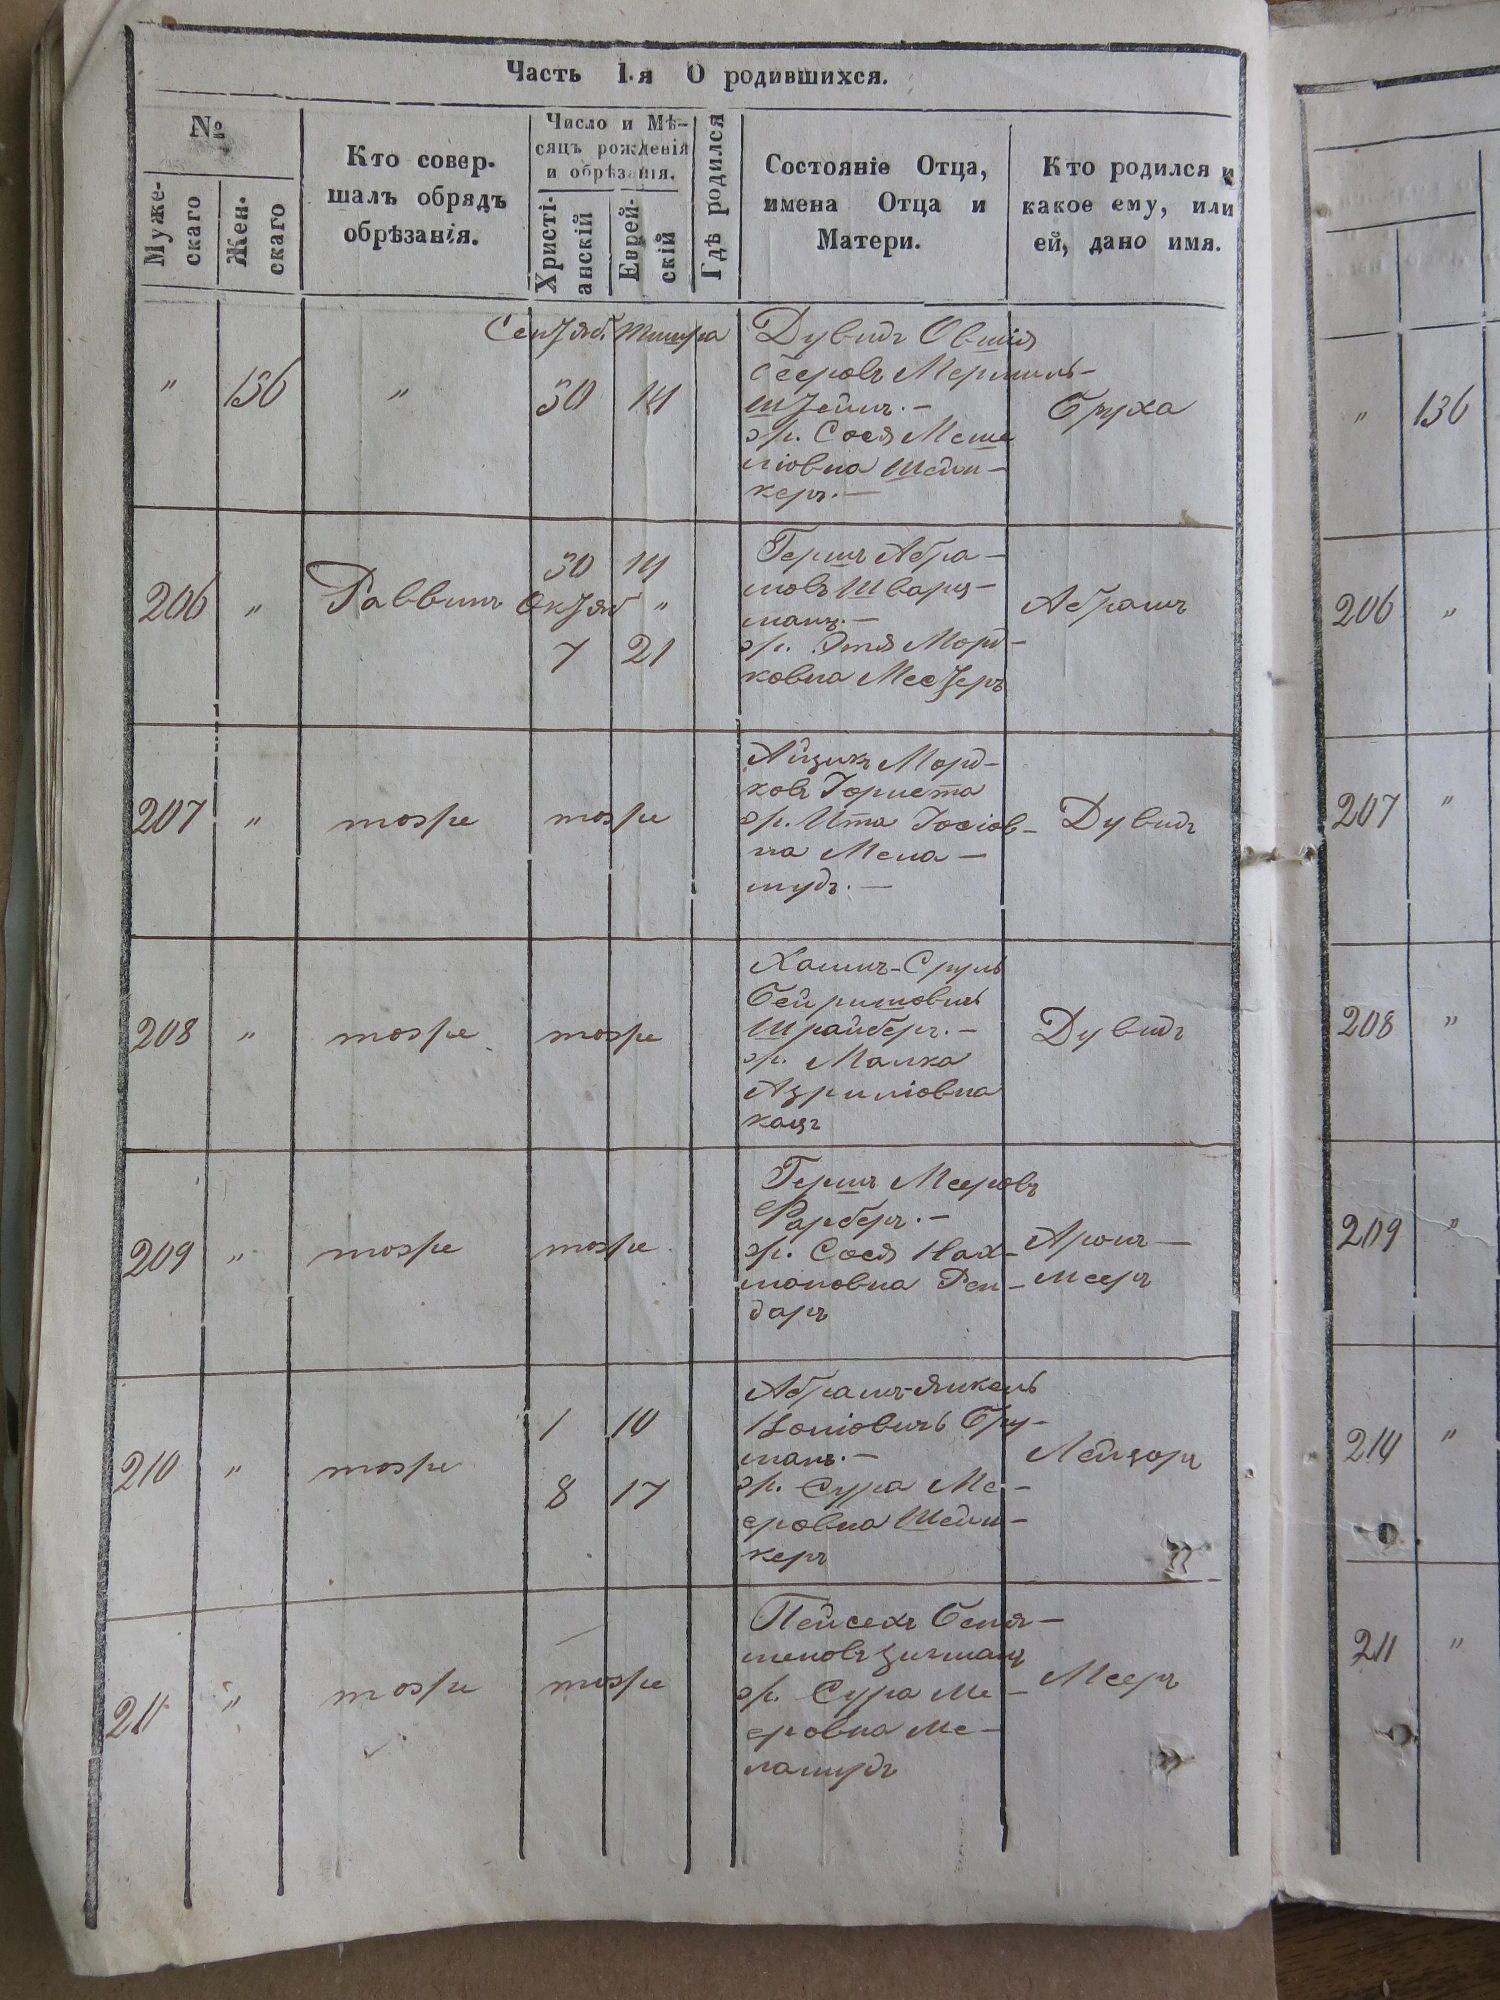 Часть I.я О родившихся.
№
Муже-
скаго
Жен.
скаго
Кто совер-
шалъ обрядъ
обрѣзанія.
Число и Мѣ-
сяцъ рожденія
и обрѣзанія.
Христі-
анскій
Еврей-
скій
Гдѣ родился
Состояніе Отца,
имена Отца и
Матери.
Кто родился и
какое ему, или
ей, дано имя.
Сентяб. Тишра
" 136 " 30 14
Дувидъ Овшія
Мермель-
штейнъ.-
эр. Сося Меше
ліовна Шейн-
керъ.-
Бруха
206 " Раввинъ
30 14
Октяб "
7 21
Гершъ Абра-
мовъ Шварц-
манъ.-
эр. Этя Морд-
ковна Месżеръ
Абрамъ
207 " тоже тоже
Айзикъ Морд-
ковъ Гориста
эр. Ита Іосіов-
на Мела-
мудъ.-
Дувидъ
208 " тоже тоже
Хаимъ-Сруль
Бейришовичъ
Шрайберъ.-
эр. Малка
Азриліовна
кацъ
Дувидъ
209 " тоже тоже
Гершъ Мееровъ
Фарберъ.-
эр. Сося Нах-
мановна Рен-
даръ
Аронъ-
мееръ
210 " тоже
1 10
8 17
Абрамъ-Янкель
Іоліовичъ Бру-
манъ.-
эр. Сура Ме-
еровна Шейн-
керъ
Лейзоръ
211 " тоже тоже
Пейсехъ Беня-
меновъ Зигманъ
эр. Сура Ме-
еровна Ме-
ламудъ
Мееръ
" 136
206 "
207 "
208 "
209 "
210 "
211 "